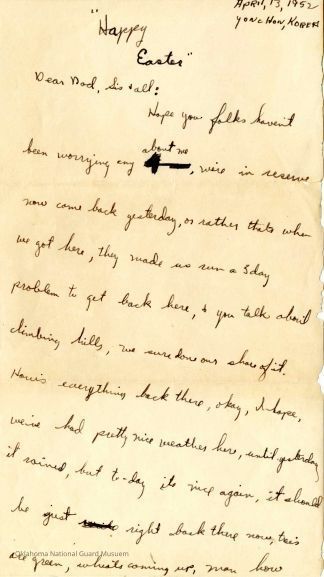 April, 13, 1952
Yonchon, Korea
"Happy
Easter"
Dear Dad, Sis & all:
Hope you folks havent
been worrying any about me, we're in reserve
now came back yesterday, or rather thats when
we got here, they made us run a 3 day
problem to get back here, & you talk about
climbing hills, we sure done our share of it.
How's everything back there, okay, I hope,
we've had pretty nice weather here, until yesterday
it rained, but to-day its nice again, it should
be just right back there now, trees
are green, wheats coming up, man how
Oklahoma National Guard Musuem